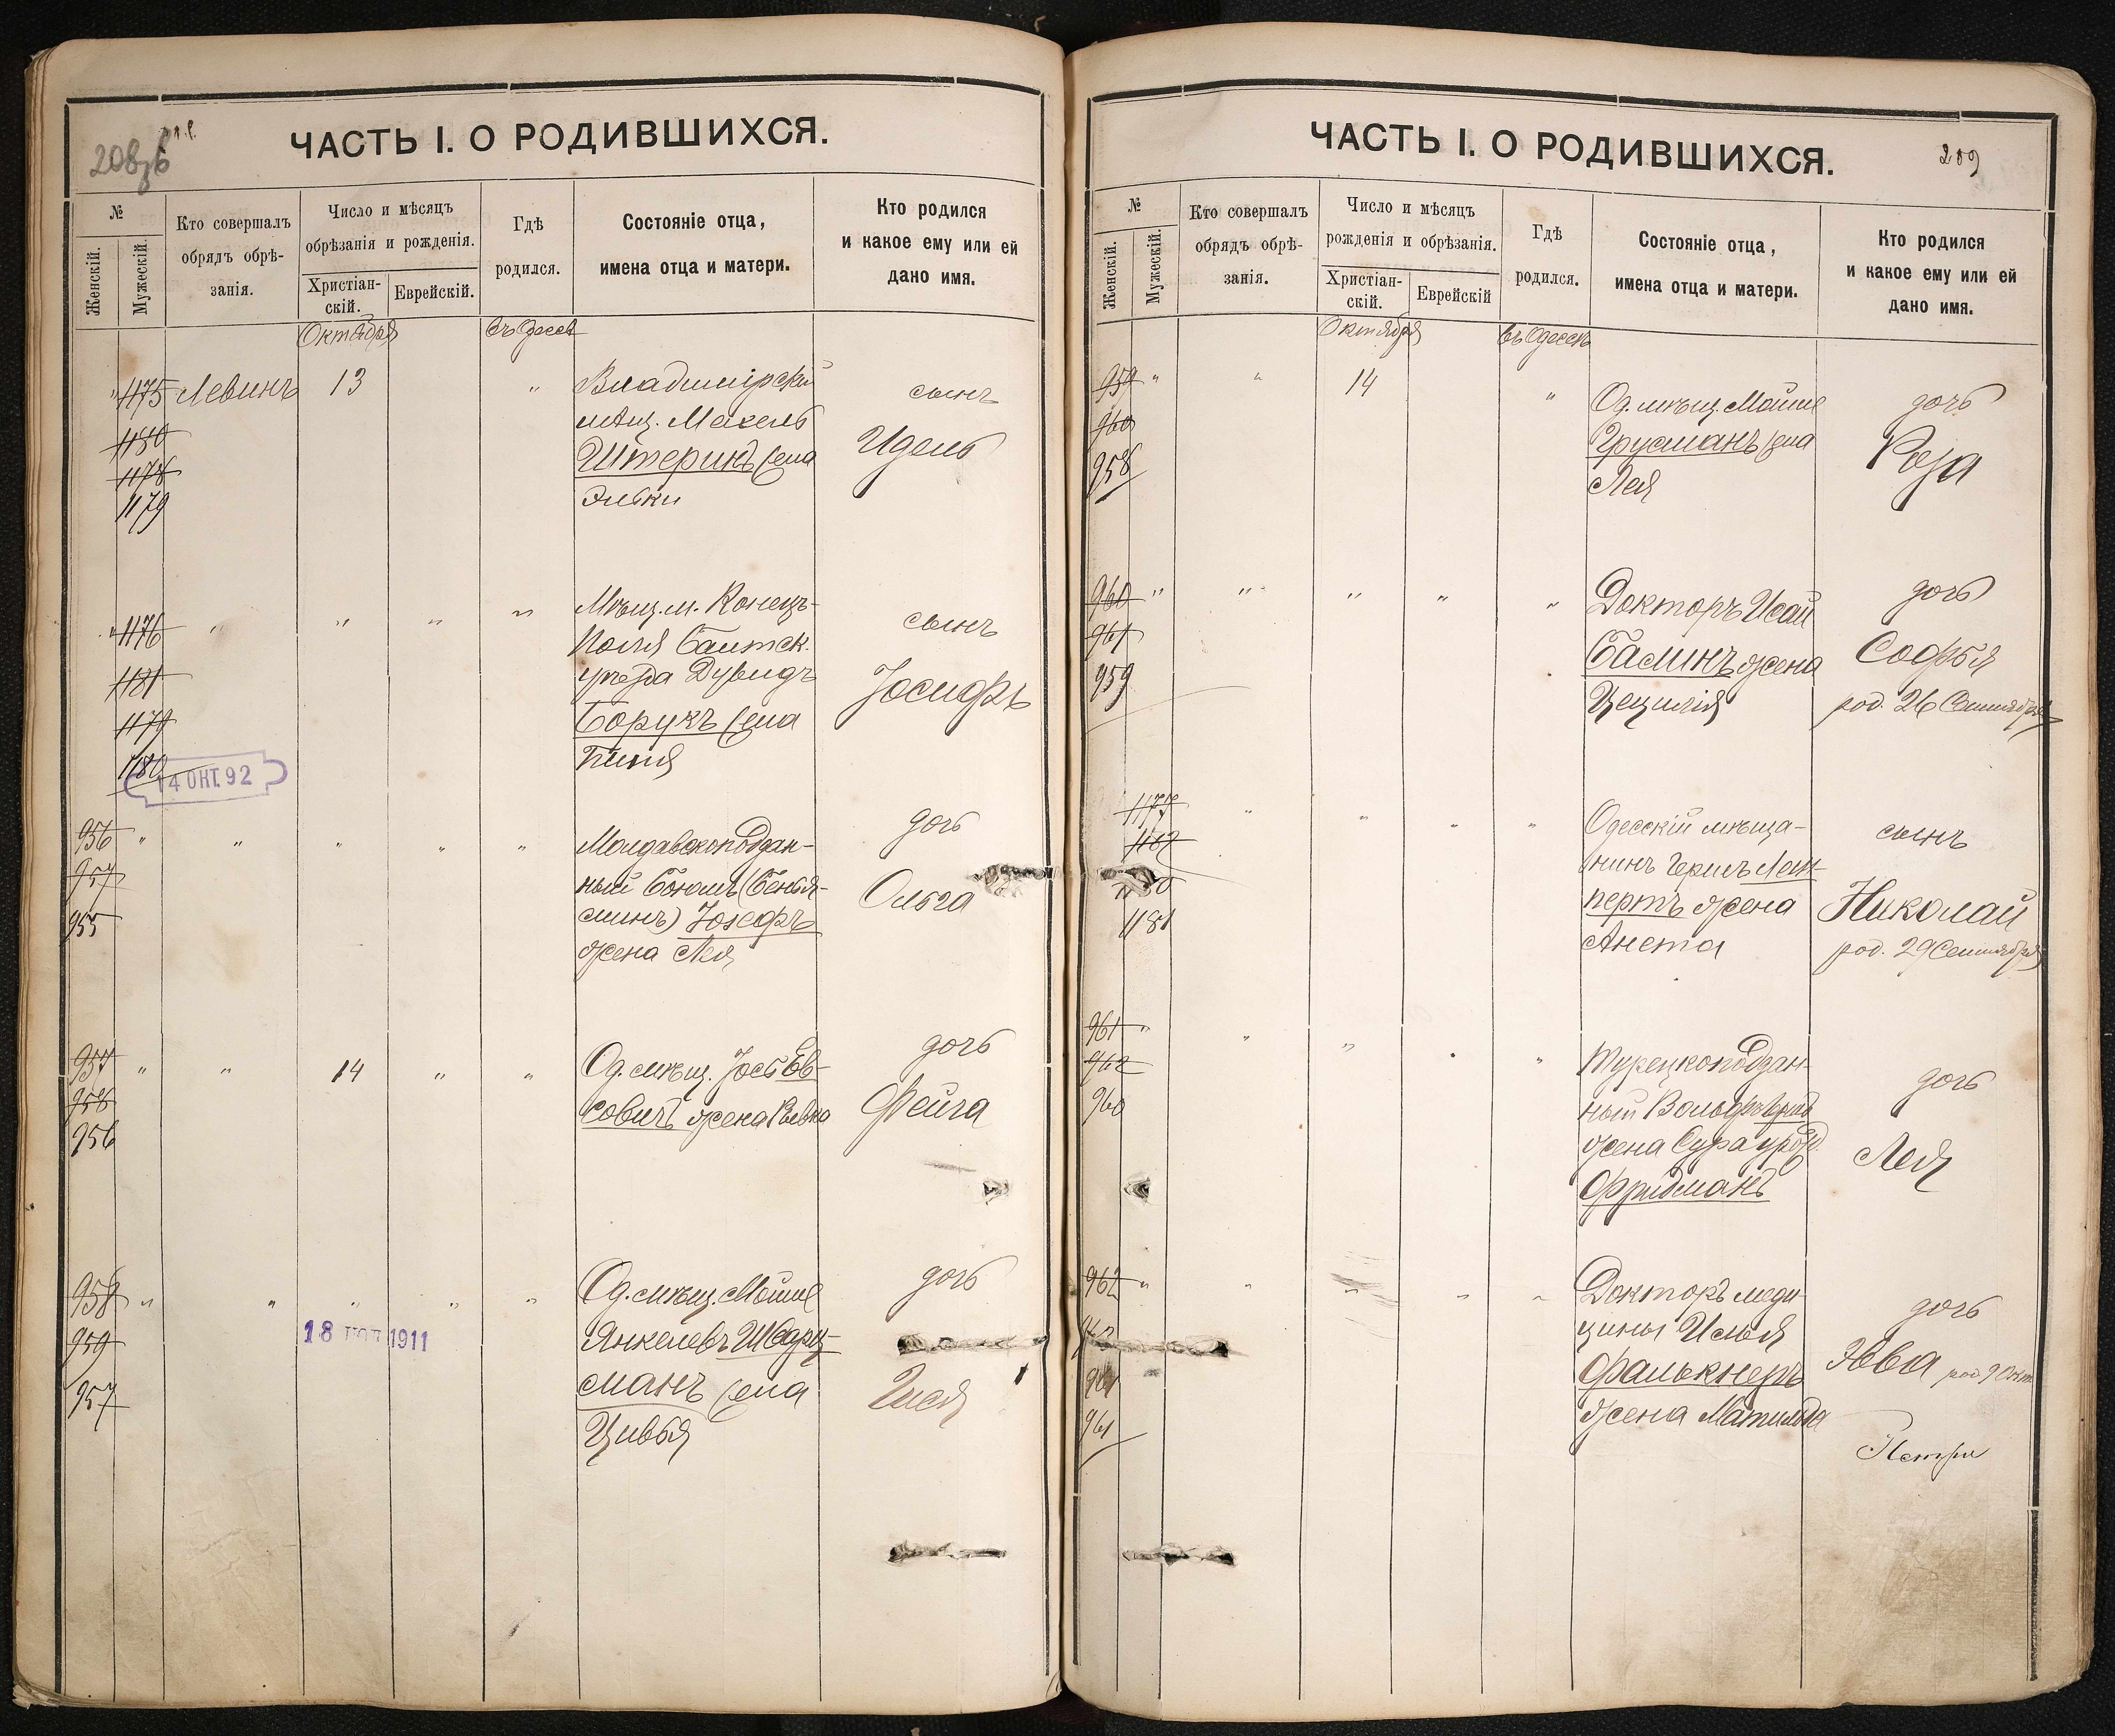 208об
ЧАСТЬ I. О РОДИВШИХСЯ.
№
Женскій.
Мужескій.
Кто совершалъ
обрядъ обрѣ-
занія.
Число и мѣсяцъ
обрѣзанія и рожденія.
Христіан-
скій.
Еврейскій.
Гдѣ
родился.
Состояніе отца,
имена отца и матери.
Кто родился
и какое ему или ей
дано имя.
Октября
въ Одессѣ
1175 Левинъ 13 " Владимірскій
мѣщ. Мехель
Штеринъ жена
Эльки
1180
1178
1179
сынъ
Идель
1176 " " " " Мѣщ. м. Конецъ-
поля Балтск.
уѣзда Дувидъ
Борухъ жена
1181
1179
1180
сынъ
Іосифъ
14 ОКТ. 92
956 " " " " " Молдавскоподдан-
ный Боюмъ (Бенья-
минъ) Іозефъ
жена Лея
957
955
дочь
Ольга
957 " " 14 " " Од. мѣщ. Іось Ев-
совичъ жена Ривка
958
956
дочь
Фейга
958 " " " " " Од. мѣщ. Мойше
Янкелевъ Шварц-
манъ жена
Цивья
959
957
дочь
18 1911
209
ЧАСТЬ I. О РОДИВШИХСЯ.
№
Женскій.
Мужескій.
Кто совершалъ
обрядъ обрѣ-
занія.
Число и мѣсяцъ
рожденія и обрѣзанія.
Христіан-
скій.
Еврейскій
Гдѣ
родился.
Состояніе отца,
имена отца и матери.
Кто родился
и какое ему или ей
дано имя.
Октября
въ Одессѣ
959 " " 14 " Од. мѣщ. Мойше
Грусманъ жена
Лея
960
958
дочь
Роза
960 " " " " " Докторъ Исай
Балинъ жена
Цецилія
961
959
дочь
Софья
род. 26 Сентября
1177 " " " " Одесскій мѣща-
нинъ Герил
пертъ жена
Анета
1182
1180
1181
сынъ
Николай
род. 29 Сентября
961 " " " " " Турецкоподдан-
ный Вольфъ
жена Сура урожд.
Фридманъ
962
960
дочь
Лея
962 " " " " " Докторъ меди-
цины Илья
Фалькнеръ
жена Матильда
961
дочь
Эва род. 9 Окт.